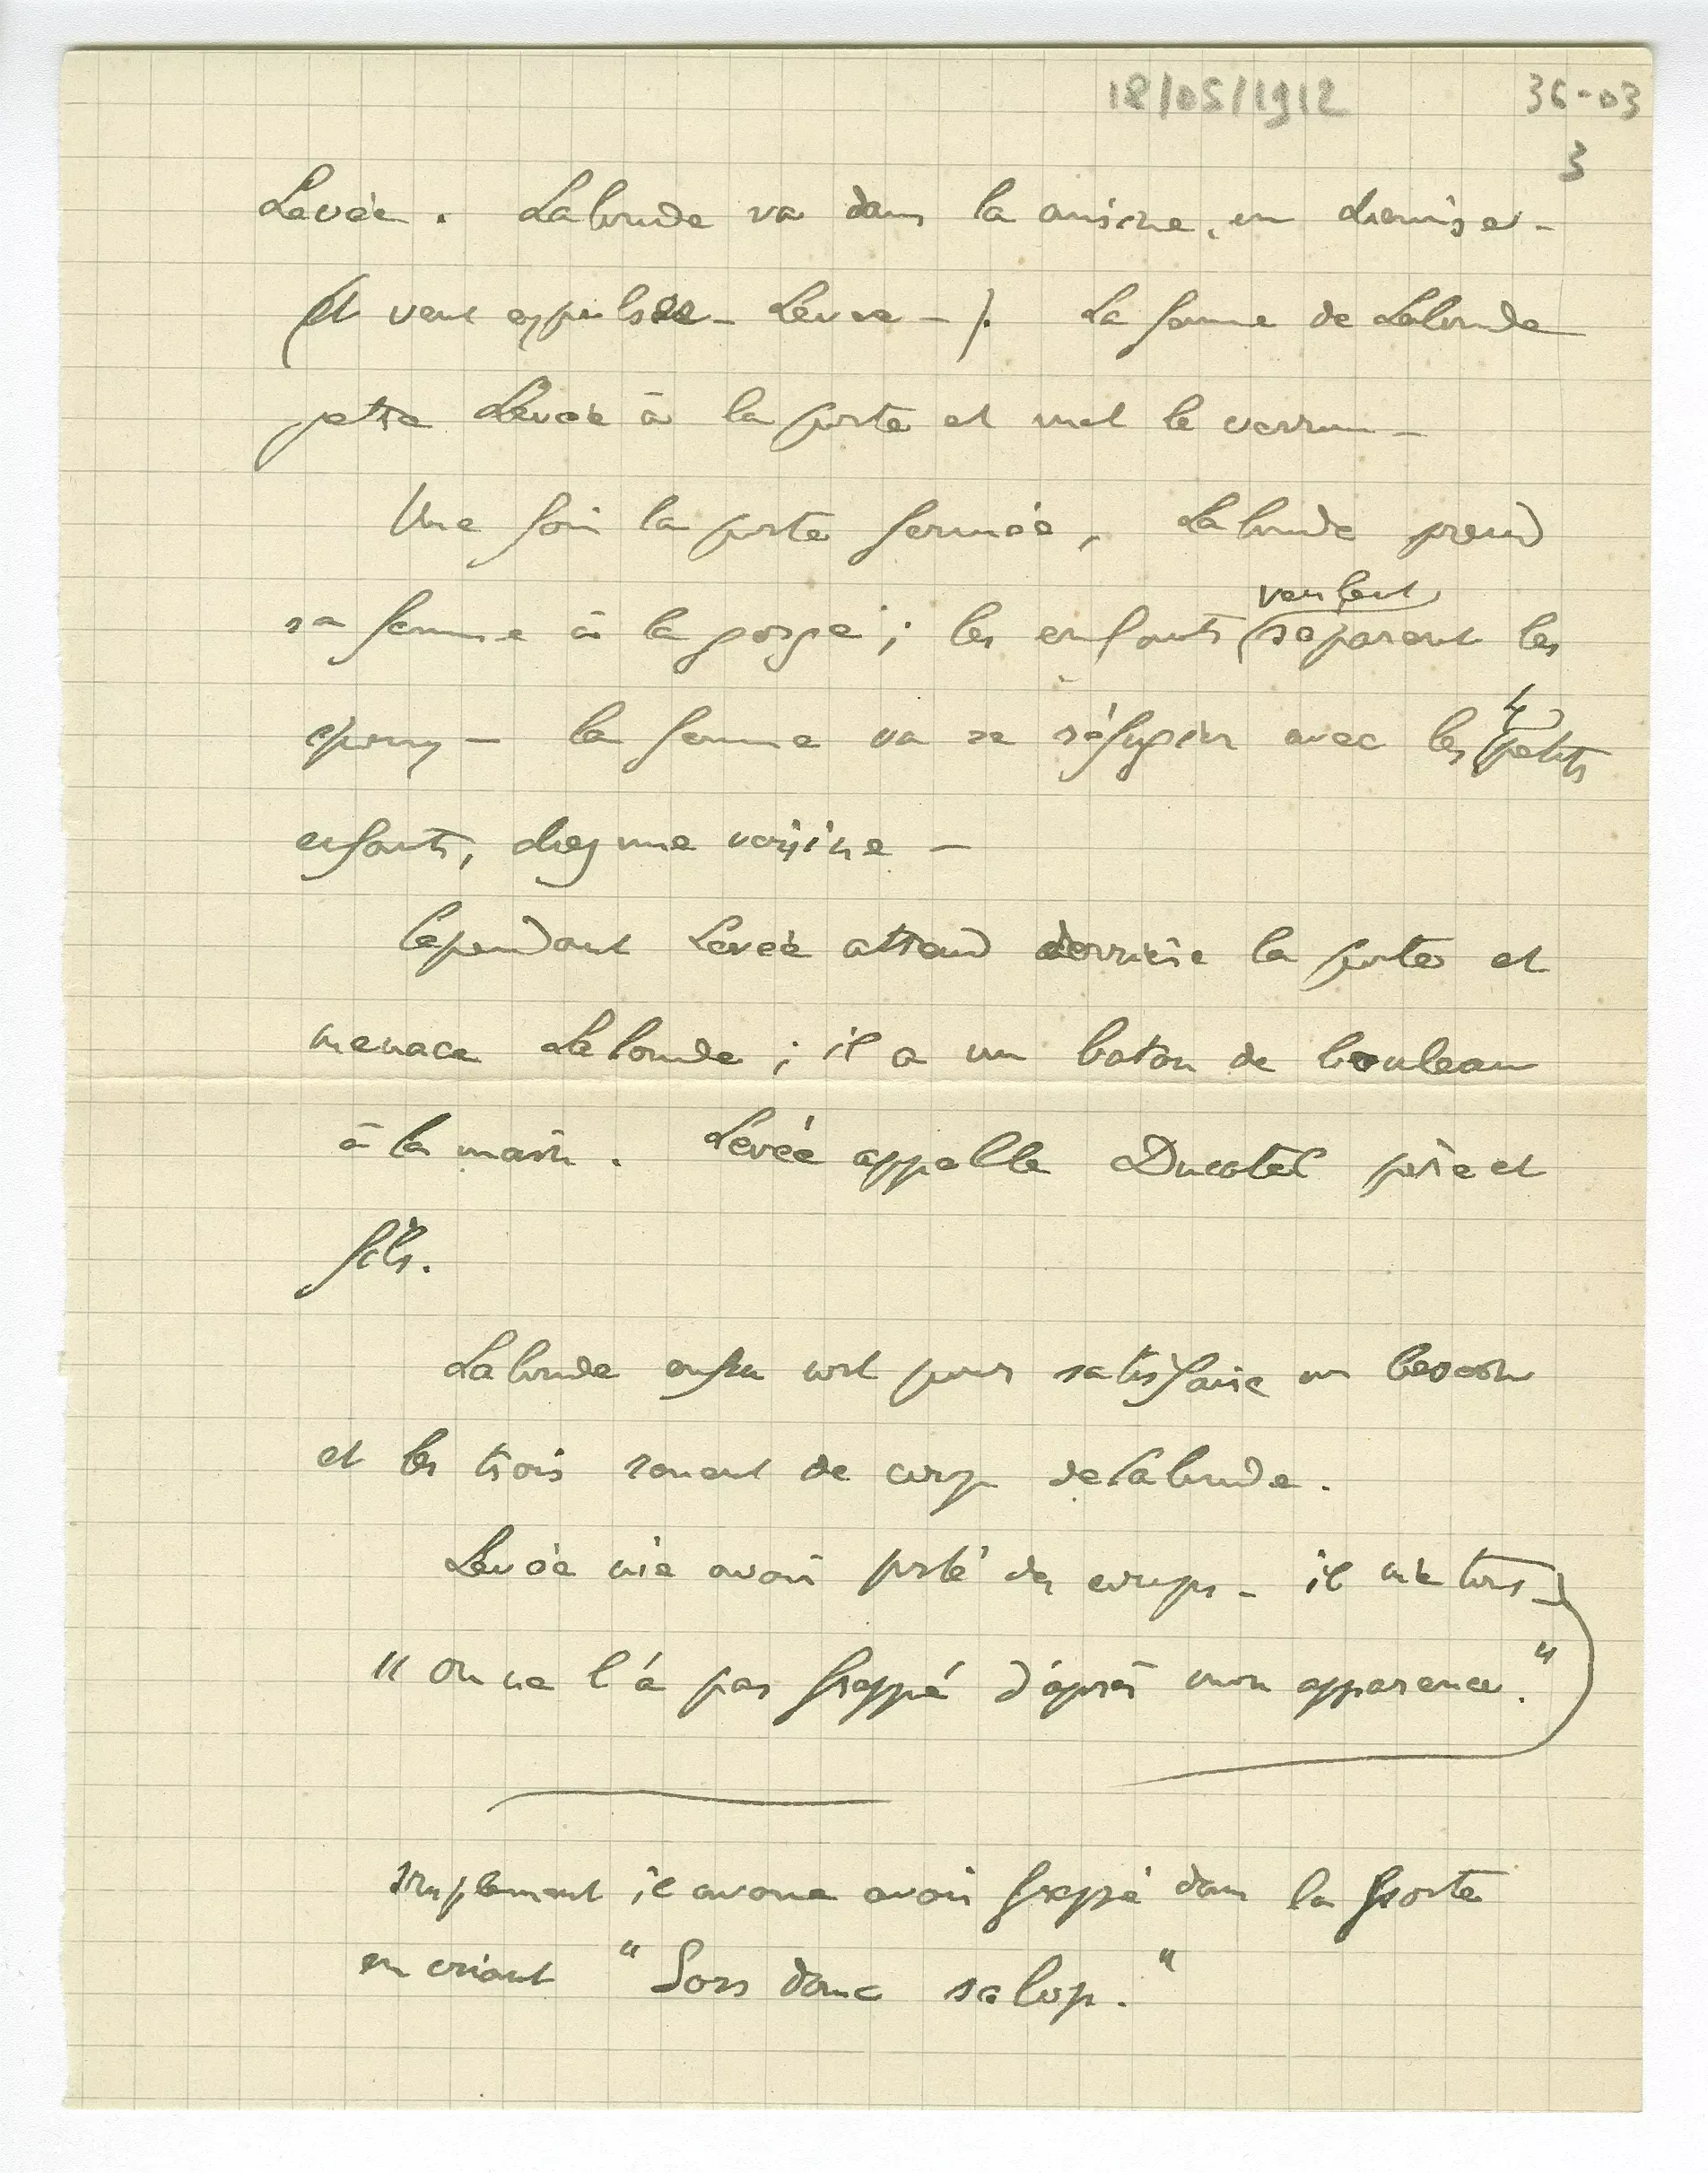 18/05/1912 36-03
3
Levée. Lalonde va dans la cuisine, en chemise -
(et veut expulser - Levée -). La femme de Lalonde
jette Levée à la porte et met le verrou -
Une fois la porte fermée, Lalonde prend
veulent
sa femme à la gorge ; les enfants (séparent les
4
époux - la femme va se réfugier avec les petits
enfants, chez une voisine -
Cependant Levée attend derrière la porte et
menace Lalonde ; il a un baton de bouleau
à la main. Levée appelle Ducatel père et
fils.
Lalonde enfin sort pour satisfaire un besoin
et les trois rouent de coups de Lalonde.
Levée nie avoir porté des coups - il nie tout -)
"On ne l'a pas frappé d'après mon apparence."
simplement il avoue avoir frappé dans la porte
en criant "Sors donc salop."